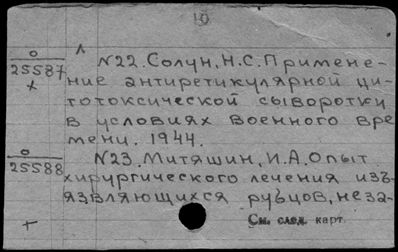 10
О
25587
+
N22. Солун, Н.С. Примене-
ние антиретикулярной ци-
тотоксической сыворотки
в условиях военного вре
мени. 1944.
О
25588
+
N23. Митяшин, И.А. Опыт
хирургического лечения изъ-
язвляющихся рубцов, неза-
См. след. карт.